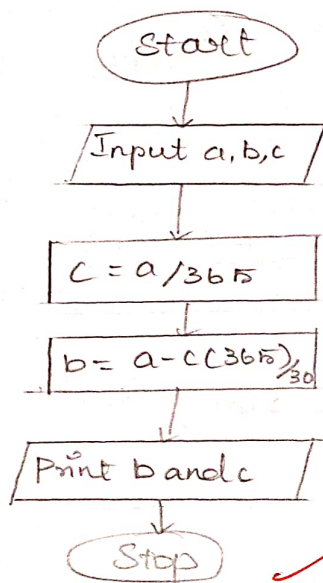 Start
Input a,b,c
c = a/365
b = a-c(365)/30
Print b and c
Stop